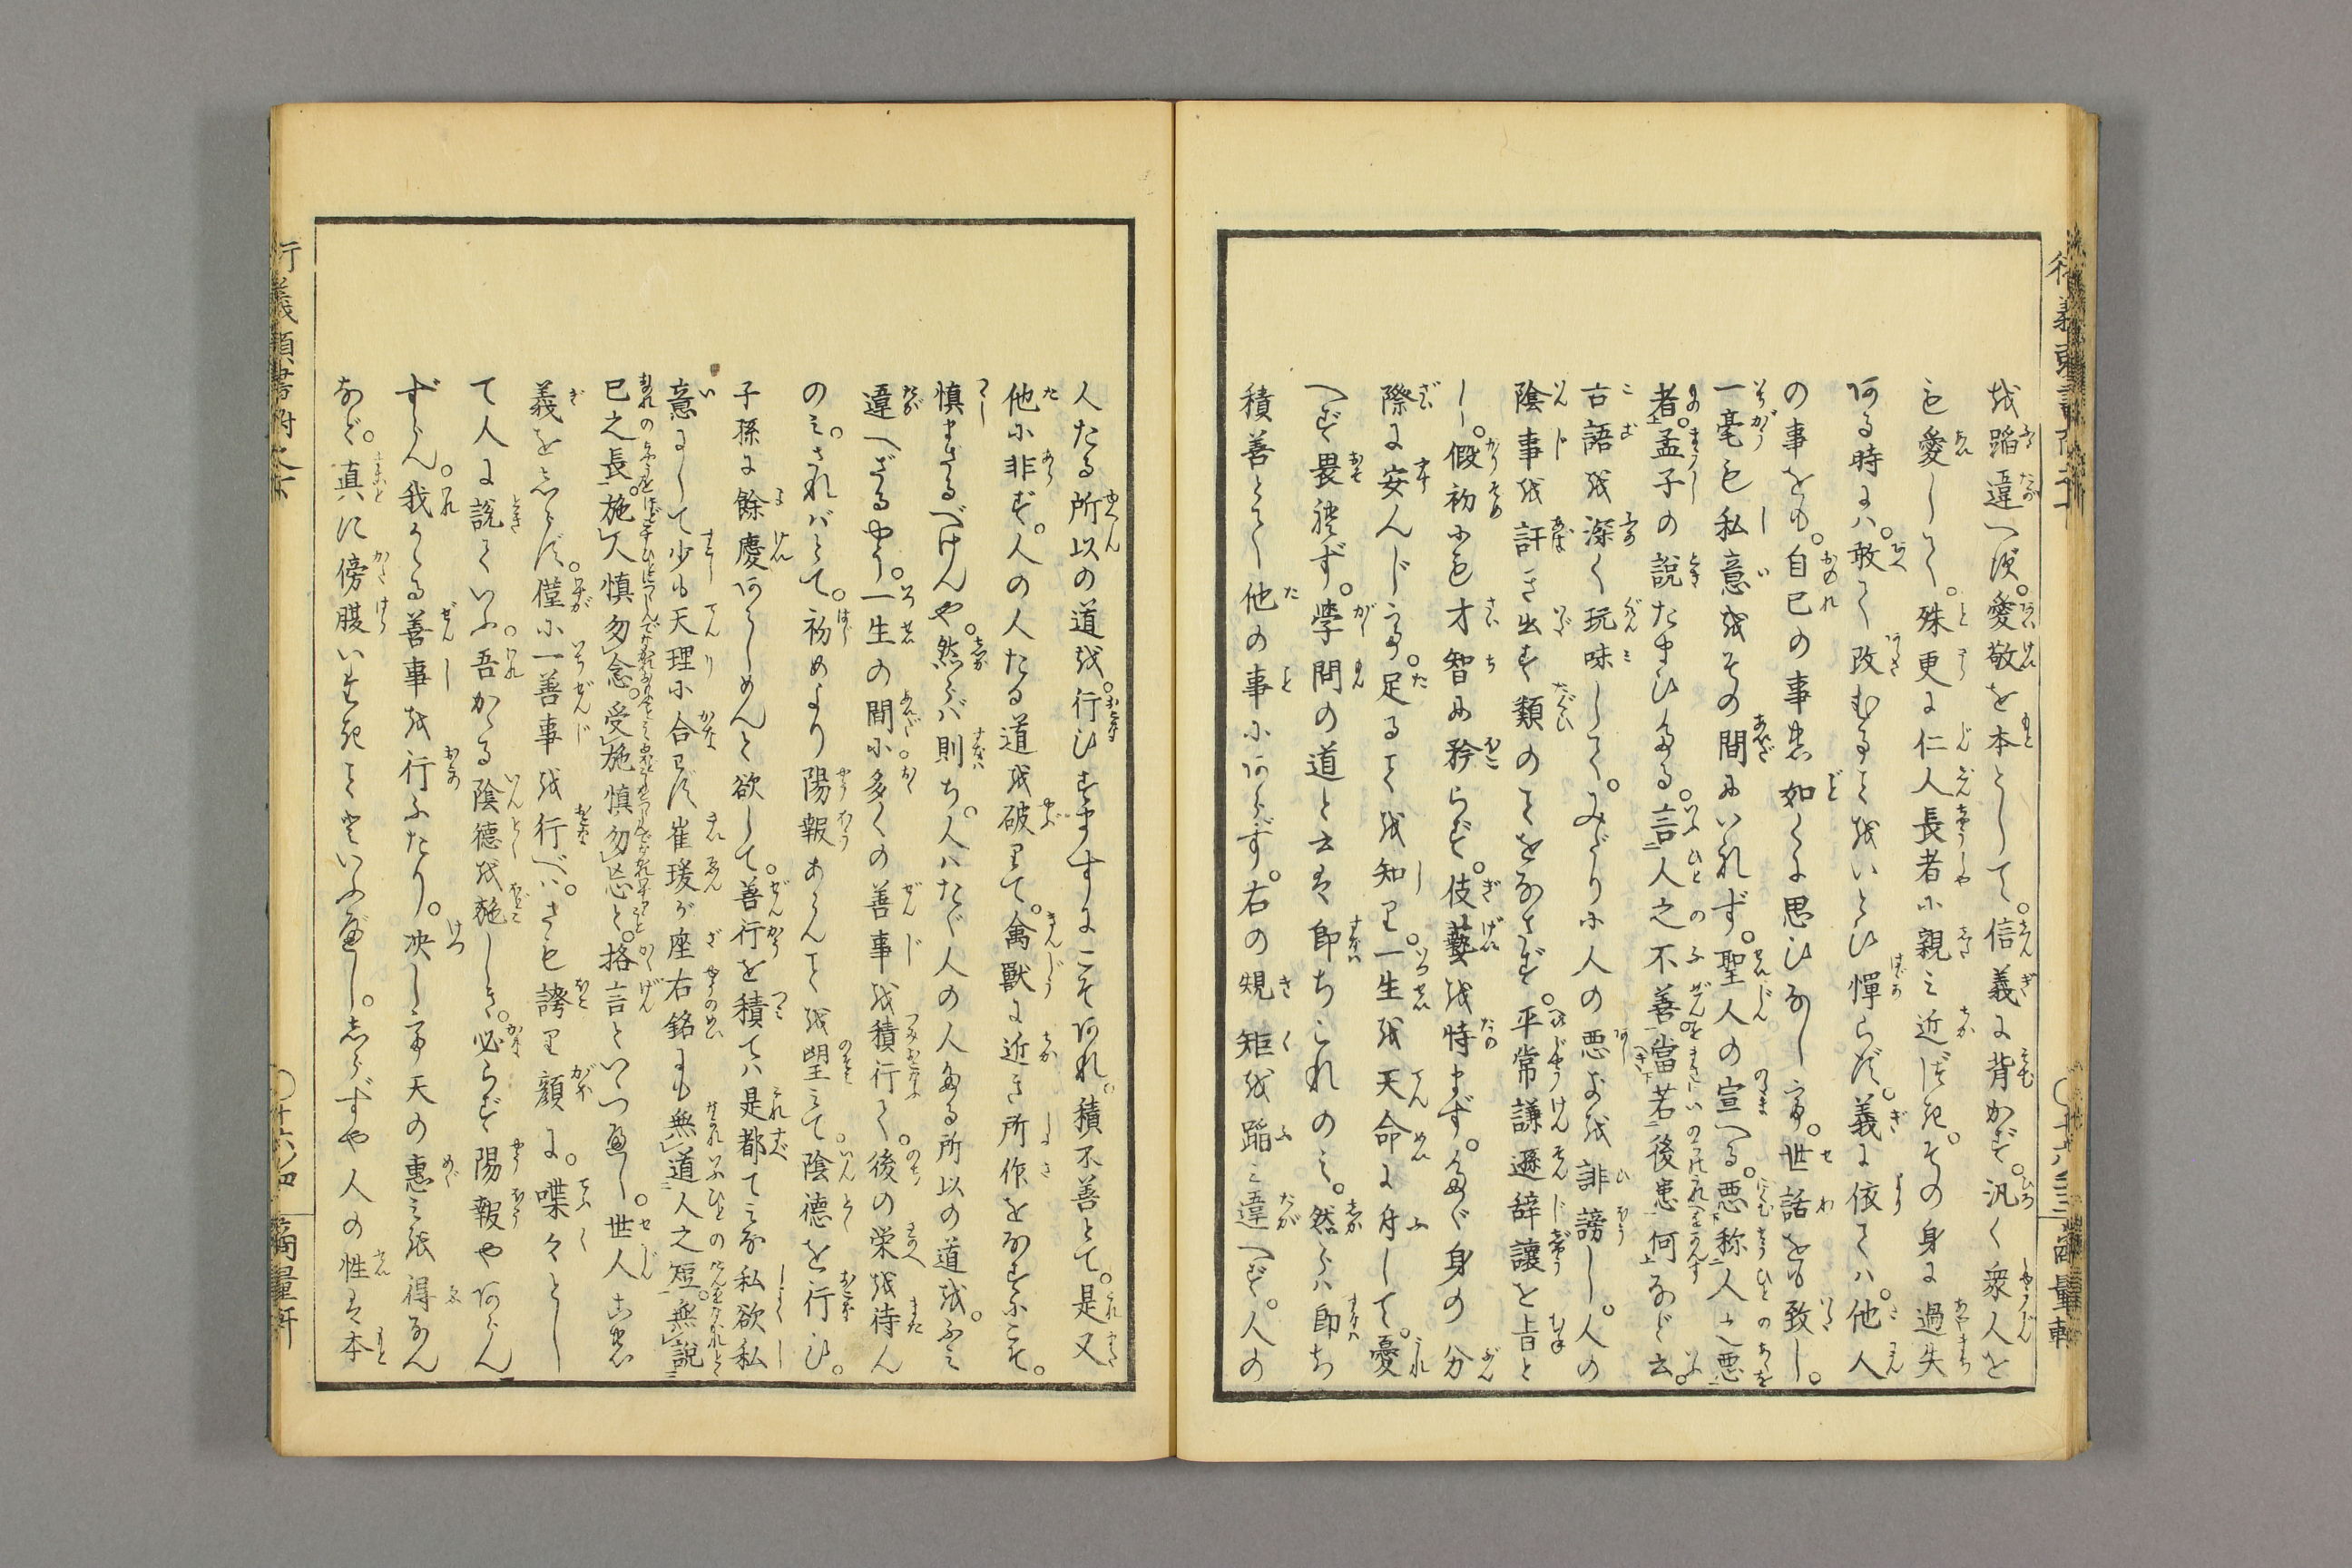 を蹈違へず。愛敬を本として。信義に背かず。汎く衆人を
も愛して。殊更に仁人長者に親み近づき。その身に過失
ある時は。敢て改むることをいとひ憚らず。義に依ては。他人
の事をも。自己の事の如くに思ひなして。世話をも致し。
一毫も私意をその間にいれず。聖人の宣へる。悪称人之悪
者。孟子の説たまひたる。言人之不善。當若後患何など云。
古語を深く玩味して。みだりに人の悪きを誹謗し。人の
陰事を訐き出す類のことをなさず。平常謙遜辞讓を旨と
し。假初にも才智に矜らず。伎藝を恃まず。たゞ身の分
際に安んじて。足ることを知り。一生を天命に舟して。憂
へず畏れず。學問の道と云は即ちこれのみ。然らば即ち
積善とて他の事にあらず。右の規矩を蹈み違へず。人の
人たる所以の道を。行ひすますにこそあれ。積不善とて。是又
他に非ず。人の人たる道を破りて。禽獸に近き所作をなすにこそ。
慎まざるべけんや。然らば則ち。人はたゞ人の人たる所以の道を。ふみ
違へざるやう。一生の間に多くの善事を積行て。後の栄を待ん
のみ。さればとて。初めより陽報あらんことを望みて。陰徳を行ひ。
子孫に餘慶あらしめんと欲して。善行を積ては是都てみな私欲私
意にして少も天理に合はず崔瑗が座右銘にも無道人之短。無説
己之長。施人慎勿念。受施慎勿忘と。格言といつべし。世人あまた
義をしらず。僅に一善事を行べば。さも誇り顔に。喋々とし
て人に説ていふ。吾かゝる陰徳を施しき。必らず陽報やあらん
ずらん。我かゝる善事を行ふたり。决して天の惠みを得なん
など。真に傍腹いたきことといふべし。しらずや人の性は本
行義類書附之下
〇廿六ノ四
商量軒